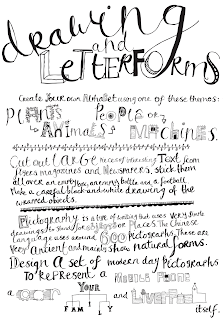 drawing
and
LETTERFORMS
Create Your own Alphabet using one of these themes:
PLANTS PEOPLE OR
ANIMALS MACHINES.
Cut out LARGE pieces of interesting Text from
flyers magazines and Newspapers, stick them
all over an empty box, an empty bottle or a football.
Make a careful black and white drawing of the
wrapped objects.
Pictography is a type of writing that uses very simple
drawings to stand for objects or Places. The Chinese
Language uses around 600 pictographs. These are
very ancient and mainly show natural forms.
Design A set of modern day Pictographs
To RePResent a MOBILE PHONE
a DOOR Your and LIVERPOOL
FAMILY itself.